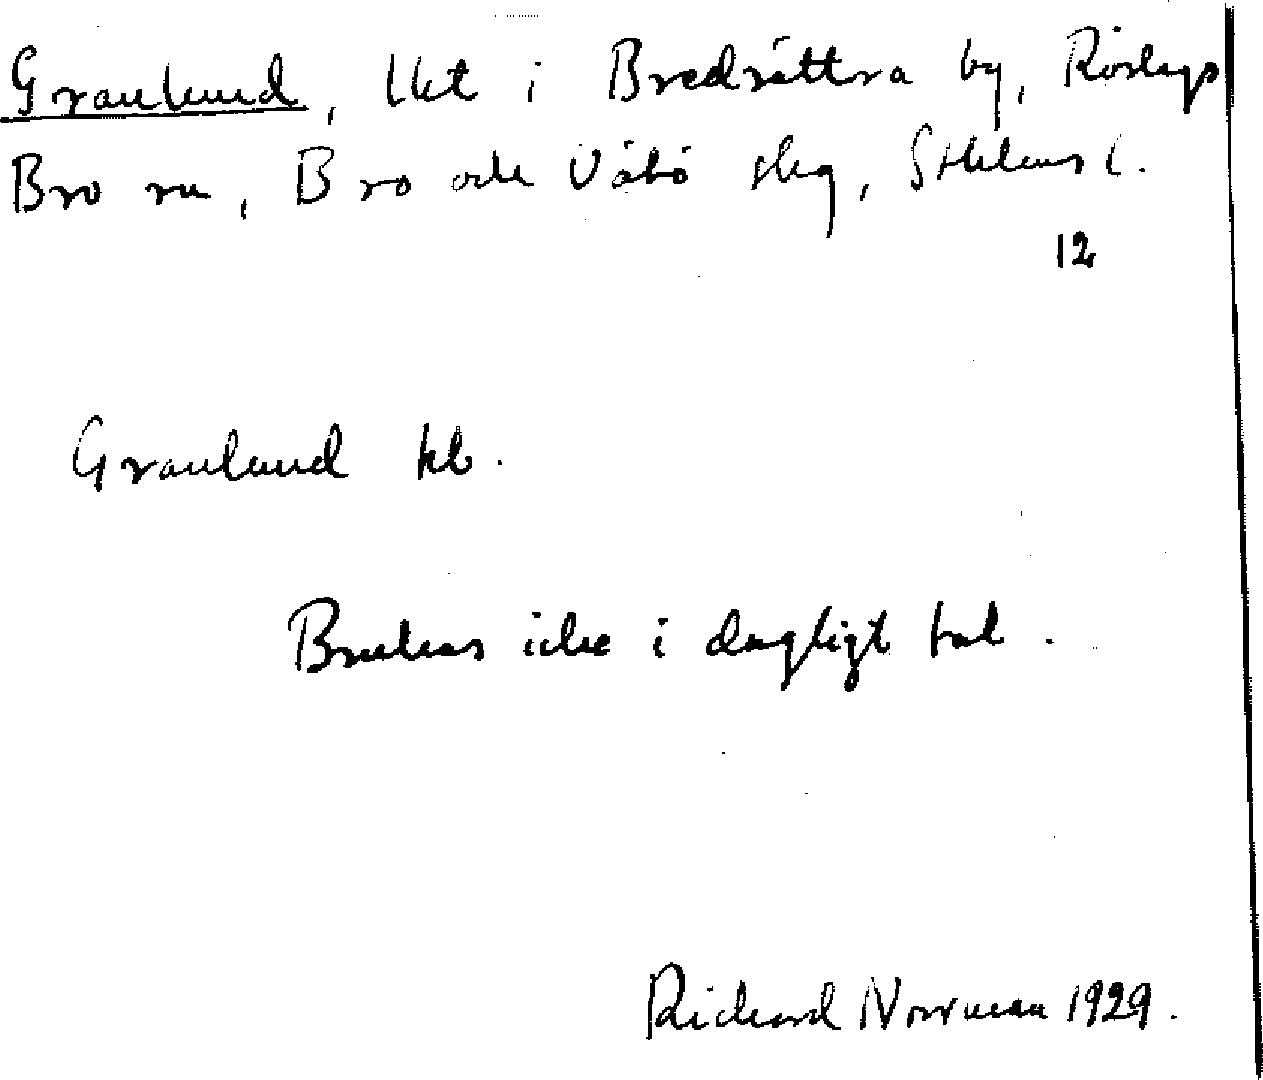 Granlund, lht i Bredsättra by, Roslags
Bro sn, Bro och Vätö skg, Sthlms l.
12
Granlund kb.
Brukas icke i dagligt tal.
Richard Norrman 1929.